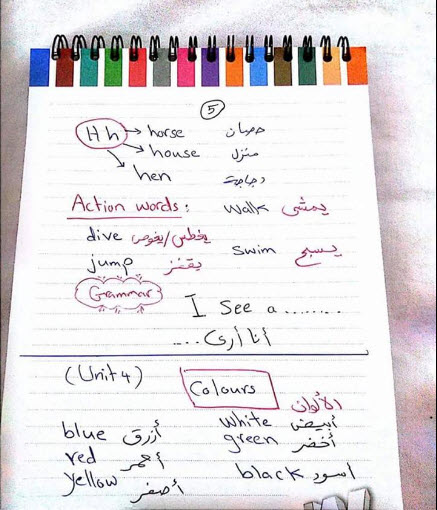 5
Hh → horse حصان
→ house منزل
→ hen دجاجة
Action words: walk يمشي
dive يغطس/يغوص swim يسبح
jump يقفز
Grammar
I see a ........
أنا أرى ....
(Unit 4) Colours الألوان
blue أزرق white أبيض
red أحمر green أخضر
yellow أصفر black أسود